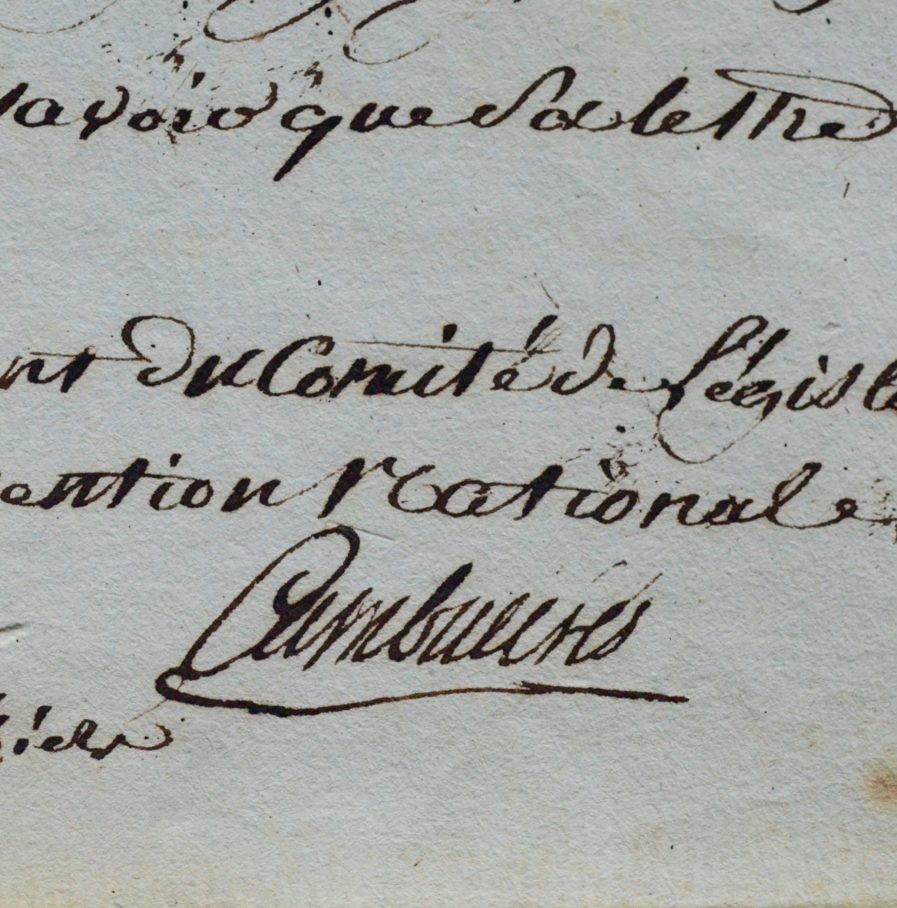 savoir que Sa lettre
ent du Comité de Législa
ention nationale
Cambacérés